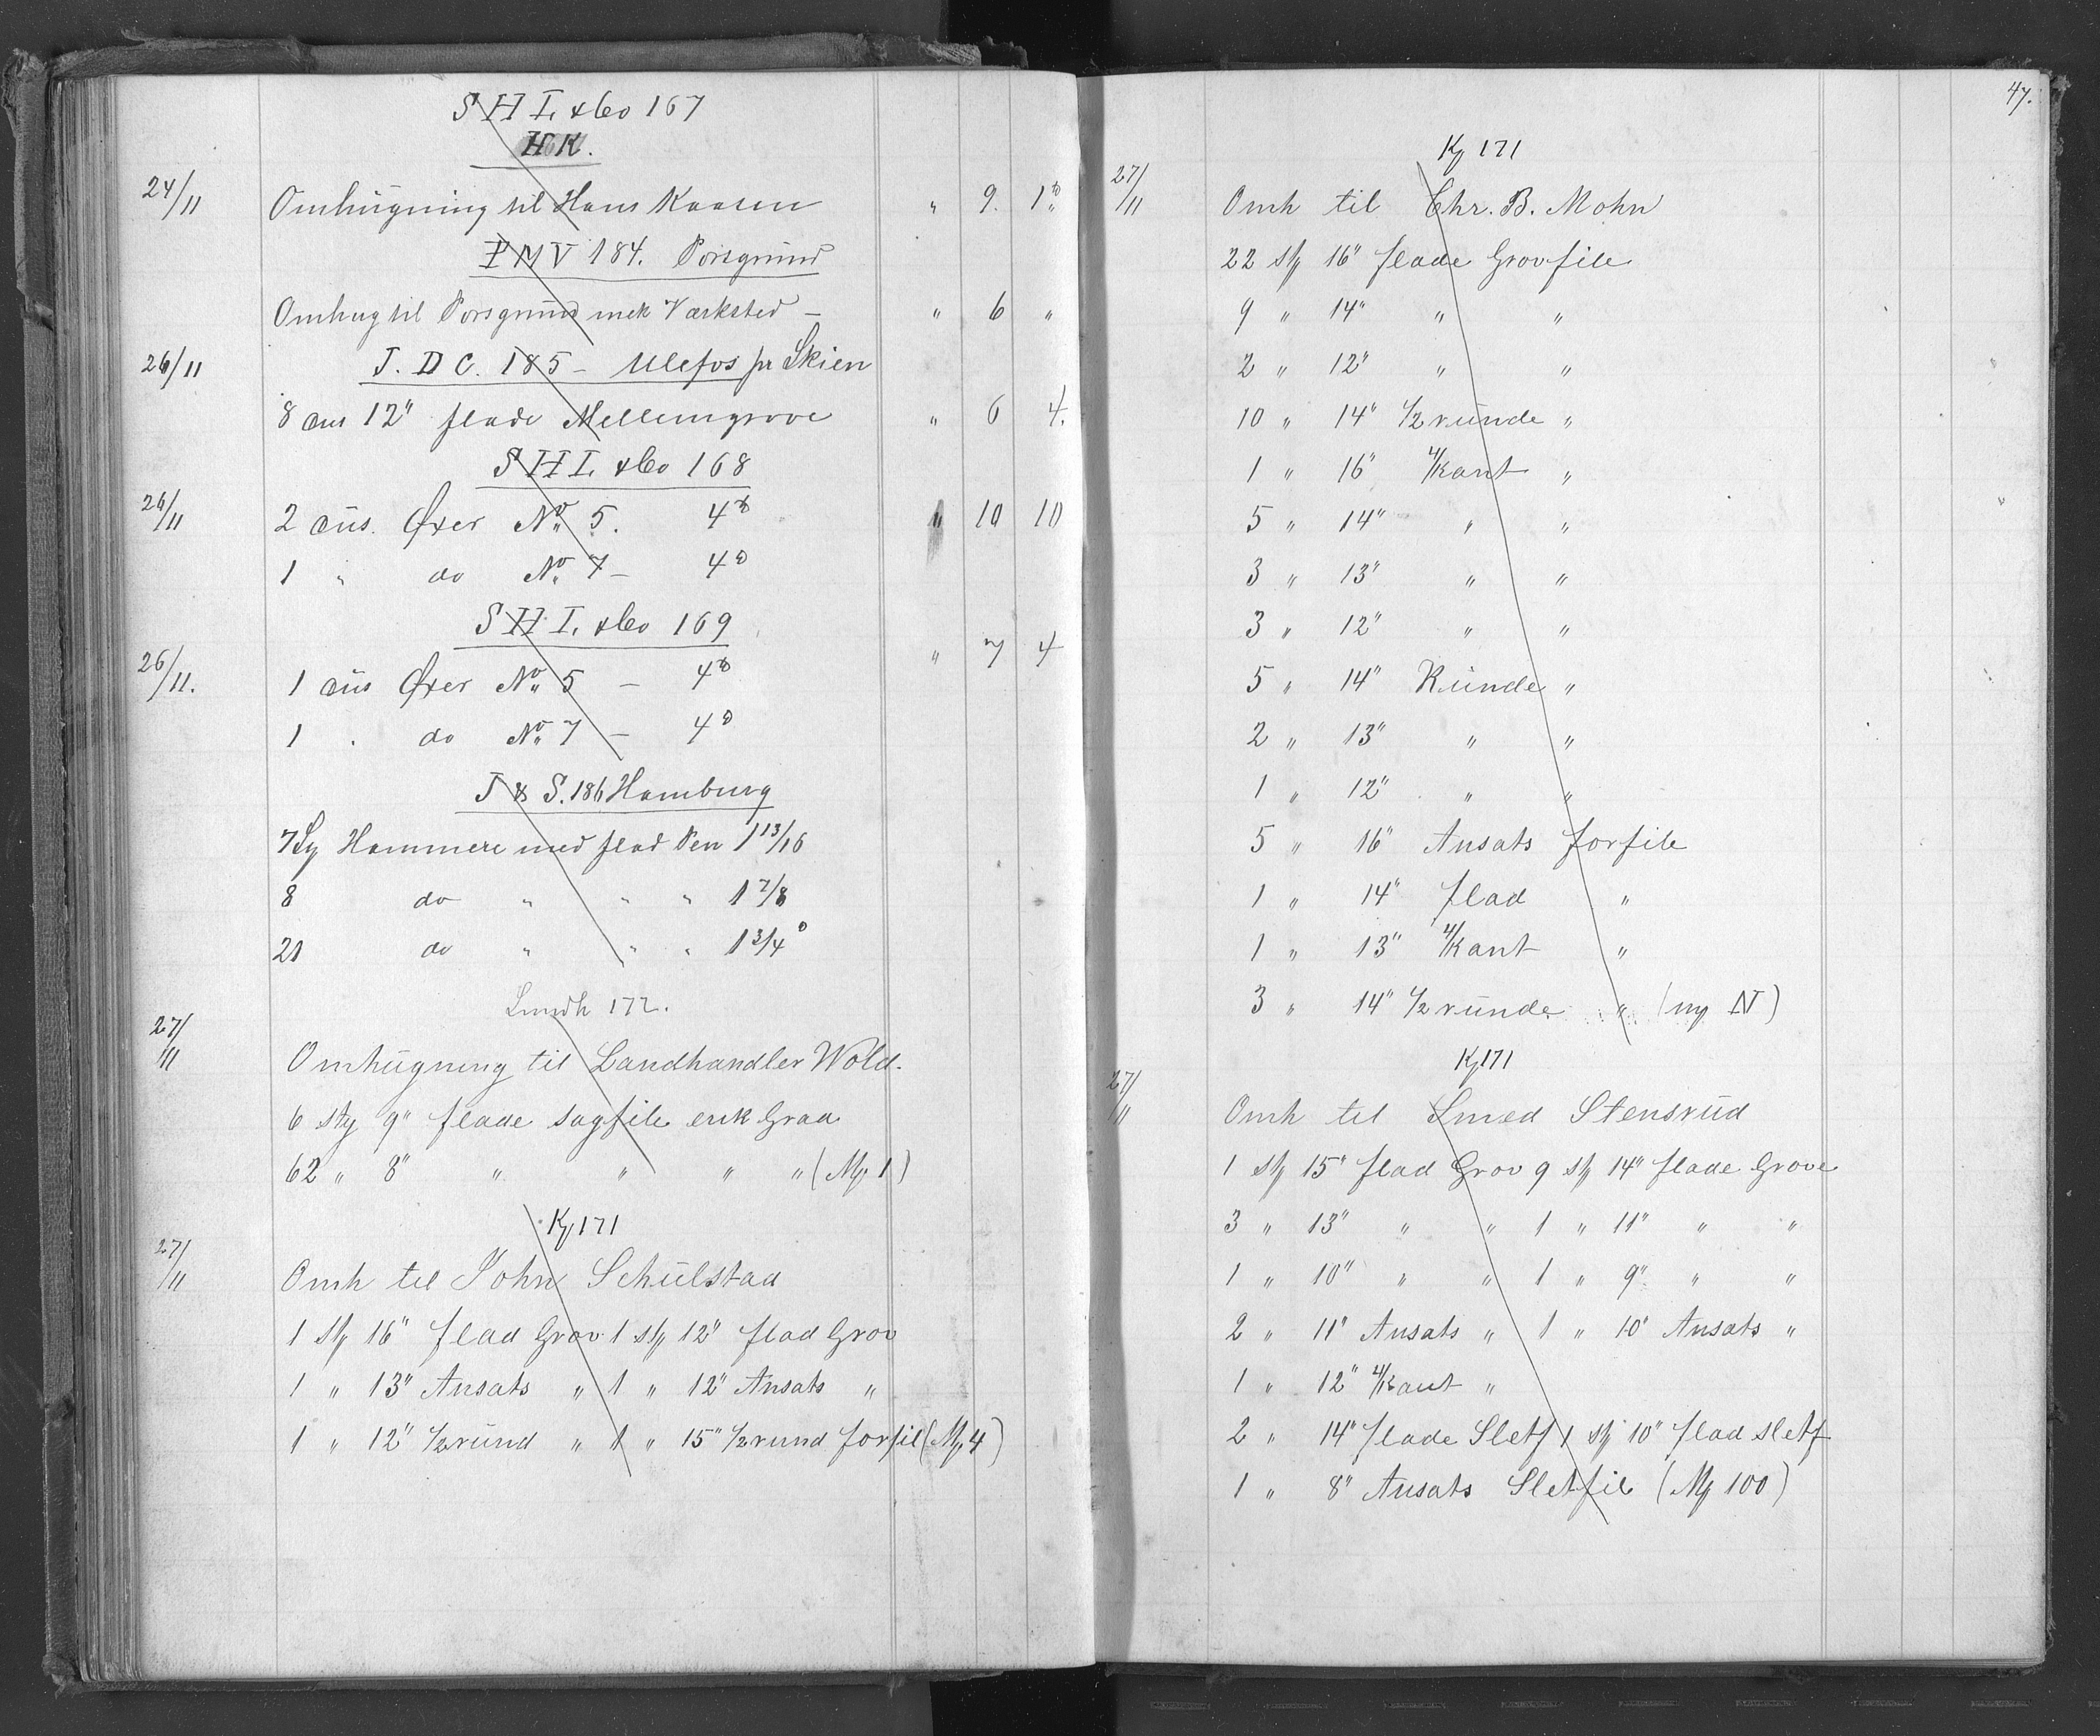 S H I. & Co 167
H K.
24/11 Omhugning til Hans Kaasen " 9. 1 "
P M V 184. Porsgrund
Omhug til Porsgrund mek Værksted — " 6 "
26/11 J. D C. 185 — Ulefos pr Skien
8 dus 12" flade Mellemgrove " 6 4.
S H I. & Co 168
26/11 2 dus. Øxer No 5. 4 " 10 10
1 " do No 7 — 4
S H I. & Co 169
26/11. 1 dus Øxer No 5 — 4 " 7 4
1 " do No 7 — 4
J & S. 186 Hamburg
7 Stj Hammere med flad Pen 1 13/16
8 do " " " 1 7/8
21 do " " " 1 3/4
Lundh 172.
27/11 Omhugning til Landhandler Wold.
6 stj 9" flade sagfile enk Grad
62 " 8" " " " " (Mg 1)
Kg 171
27/11 Omh til John Schulstad
1 Stj 16" flad Grov 1 stj 12" flad Grov
1 " 13" Ansats " 1 " 12" Ansats "
1 " 12" 1/2 rund " 1 " 15" 1/2 rund forfil (Mg 4)
47.
Kg 171
27/11 Omh til Chr. B. Mohn
22 stj 16" flade Grovfile
9 " 14" " "
2 " 12" " "
10 " 14" 1/2 runde "
1 " 16" 4/kant "
5 " 14" " "
3 " 13" " "
3 " 12" " "
5 " 14" Runde "
2 " 13" " "
1 " 12" " "
5 " 16" Ansats forfile
1 " 14" flad "
1 " 13" 4/kant "
3 " 14" 1/2 runde " (mg N)
Kg 171
27/11 Omh til Smed Stensrud
1 stj 15" flad Grov 9 stj 14" flade Grove
3 " 13" " " 1 " 11" " "
1 " 10" " " 1 " 9" " "
2 " 11" Ansats " 1 " 10" Ansats "
1 " 12" 4/kant "
2 " 14" flade Sletf 1 stj 10" flad sletf
1 " 8" Ansats Sletfil (Mg 100)